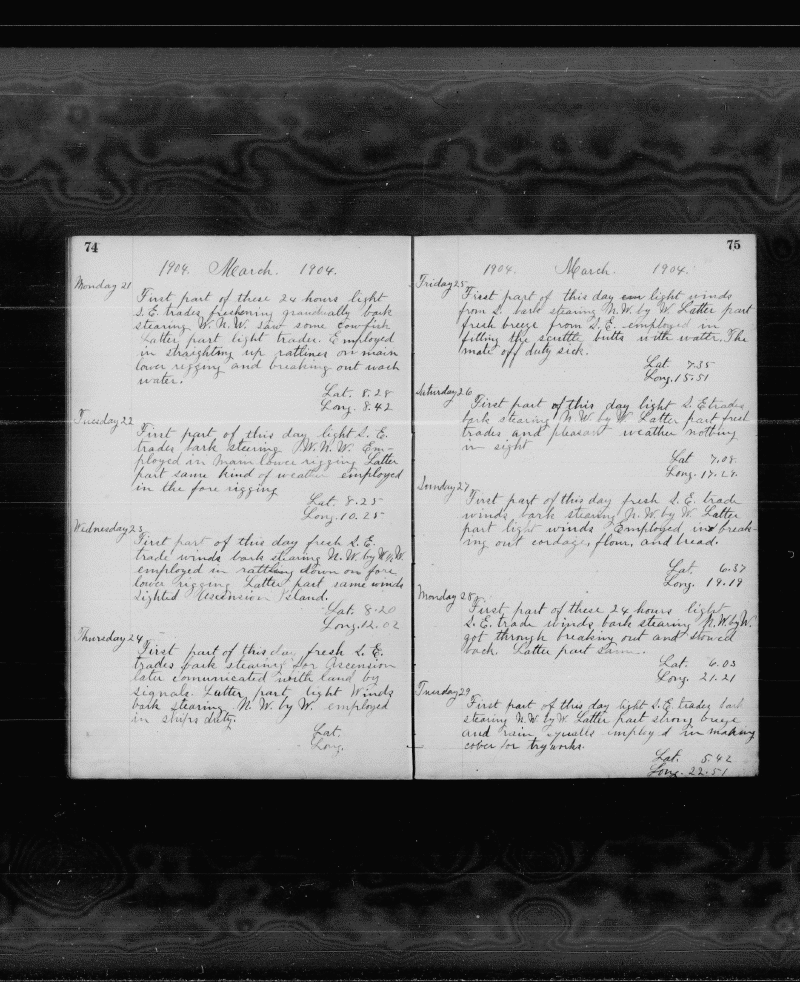 74
1904. March. 1904.
Monday 21
First part of these 24 hours light
S.E. trades freshening grandually bark
stearing W.N.W. saw some cowfish
Latter part light trades. Employed
in straighting up ratlines on main
lower rigging and breaking out wash
water.
Lat. 8.28
Long. 8.42
Tuesday 22
First part of this day light S.E.
trades bark steering W.N.W. Em-
ployed in main lower rigging Latter
part same kind of weather employed
in the fore rigging
Lat. 8.25
Long. 10.25
Wednesday 23
First part of this day fresh S.E.
trade winds bark stearing N.W. by W.
employed in rattling down on fore
lower rigging Latter part same winds
Sighted Ascension Island.
Lat. 8.20
Long. 12.02
Thursday 24
First part of this day fresh S.E.
trades bark stearing for Ascension
later comunicated with land by
signals. Latter part light Winds
bark stearing N.W. by W. employed
in ships duty.
Lat.
Long.
75
1904. March. 1904.
Friday 25
First part of this day light winds
from S. bark stearing N.W. by W. Latter part
fresh breeze from S.E. employed in
filling the scuttle butts with water. The
mate off duty sick.
Lat. 7.35
Long. 15.51
Saturday 26
First part of this day light S.E trades
bark stearing N.W. by W. Latter part fresh
trades and pleasant weather nothing
in sight
Lat 7.08.
Long. 17.29.
Sunday 27
First part of this day fresh S.E. trade
winds bark stearing N.W. by W. Latter
part light winds Employed in break-
ing out cordage, flour, and bread.
Lat 6.37
Long. 19.19
Monday 28
First part of these 24 hours light
S.E. trade winds bark stearing N.W. by W.
got through breaking out and stowed
back. Latter part Same.
Lat. 6.03
Long. 21.21
Tuesday 29
First part of this day light S.E. trades bark
stearing N.W. by W. Latter part strong breeze
and rain squalls employd in making
cober for tryworks.
Lat. 5.42
Long. 22.51